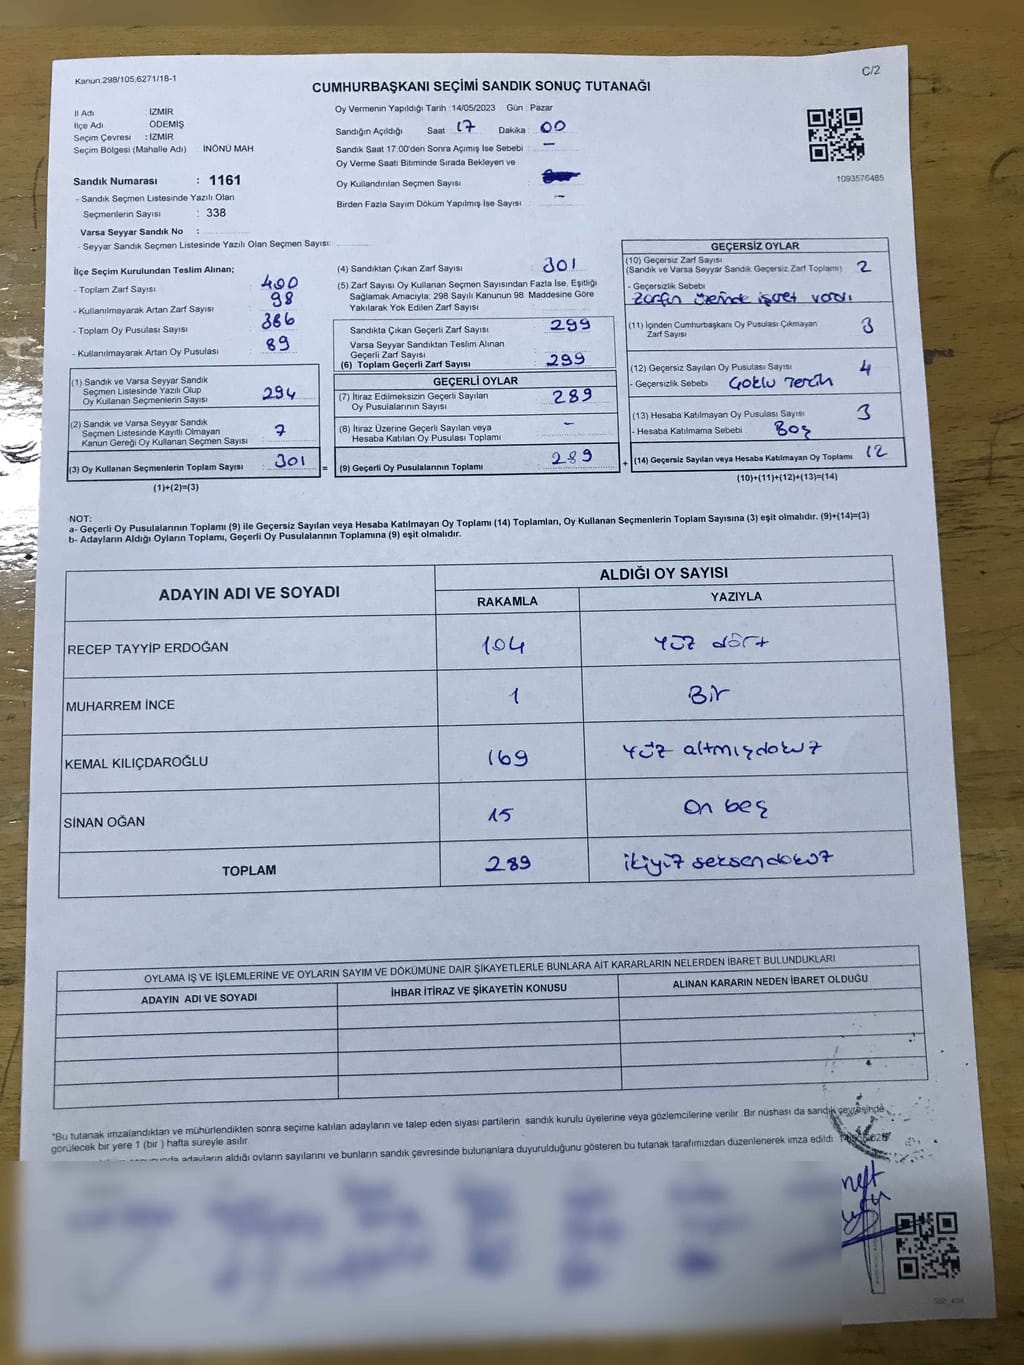 Kanun:298/105;6271/16-1
C/2
CUMHURBAŞKANI SEÇİMİ SANDIK SONUÇ TUTANAĞI
İl Adı İZMİR
İlçe Adı ÖDEMİŞ
Seçim Çevresi : İZMİR
Seçim Bölgesi (Mahalle Adı) İNÖNÜ MAH
Sandık Numarası : 1161
- Sandık Seçmen Listesinde Yazılı Olan
Seçmenlerin Sayısı : 338
Varsa Seyyar Sandık No :
- Seyyar Sandık Seçmen Listesinde Yazılı Olan Seçmen Sayısı:
Oy Vermenin Yapıldığı Tarih : 14/05/2023 Gün : Pazar
Sandığın Açıldığı Saat 17 Dakika 00
Sandık Saat 17:00'den Sonra Açımış İse Sebebi : –
Oy Verme Saati Bitiminde Sırada Bekleyen ve
Oy Kullandırılan Seçmen Sayısı
Birden Fazla Sayım Döküm Yapılmış İse Sayısı : –
1093576485
İlçe Seçim Kurulundan Teslim Alınan;
- Toplam Zarf Sayısı : 400
- Kullanılmayarak Artan Zarf Sayısı : 98
- Toplam Oy Pusulası Sayısı : 386
- Kullanılmayarak Artan Oy Pusulası : 89
(1) Sandık ve Varsa Seyyar Sandık
Seçmen Listesinde Yazılı Olup
Oy Kullanan Seçmenlerin Sayısı 294
(2) Sandık ve Varsa Seyyar Sandık
Seçmen Listesinde Kayıtlı Olmayan
Kanun Gereği Oy Kullanan Seçmen Sayısı 7
(3) Oy Kullanan Seçmenlerin Toplam Sayısı : 301 =
(1)+(2)=(3)
(4) Sandıktan Çıkan Zarf Sayısı : 301
(5) Zarf Sayısı Oy Kullanan Seçmen Sayısından Fazla İse, Eşitliği
Sağlamak Amacıyla; 298 Sayılı Kanunun 98. Maddesine Göre
Yakılarak Yok Edilen Zarf Sayısı :
Sandıkta Çıkan Geçerli Zarf Sayısı : 299
Varsa Seyyar Sandıktan Teslim Alınan
Geçerli Zarf Sayısı :
(6) Toplam Geçerli Zarf Sayısı : 299
GEÇERLİ OYLAR
(7) İtiraz Edilmeksizin Geçerli Sayılan
Oy Pusulalarının Sayısı : 289
(8) İtiraz Üzerine Geçerli Sayılan veya
Hesaba Katılan Oy Pusulası Toplamı : –
(9) Geçerli Oy Pusulalarının Toplamı : 289 +
GEÇERSİZ OYLAR
(10) Geçersiz Zarf Sayısı
(Sandık ve Varsa Seyyar Sandık Geçersiz Zarf Toplamı) 2
- Geçersizlik Sebebi :
Zarfın üzerinde işaret vardı
(11) İçinden Cumhurbaşkanı Oy Pusulası Çıkmayan
Zarf Sayısı 3
(12) Geçersiz Sayılan Oy Pusulası Sayısı : 4
- Geçersizlik Sebebi : Çoklu Tercih
(13) Hesaba Katılmayan Oy Pusulası Sayısı : 3
- Hesaba Katılmama Sebebi : Boş
(14) Geçersiz Sayılan veya Hesaba Katılmayan Oy Toplamı : 12
(10)+(11)+(12)+(13)=(14)
NOT:
a- Geçerli Oy Pusulalarının Toplamı (9) ile Geçersiz Sayılan veya Hesaba Katılmayan Oy Toplamı (14) Toplamları, Oy Kullanan Seçmenlerin Toplam Sayısına (3) eşit olmalıdır. (9)+(14)=(3)
b- Adayların Aldığı Oyların Toplamı, Geçerli Oy Pusulalarının Toplamına (9) eşit olmalıdır.
ADAYIN ADI VE SOYADI ALDIĞI OY SAYISI
RAKAMLA YAZIYLA
RECEP TAYYİP ERDOĞAN 104 Yüz dört
MUHARREM İNCE 1 Bir
KEMAL KILIÇDAROĞLU 169 Yüz altmışdokuz
SİNAN OĞAN 15 On beş
TOPLAM 289 ikiyüz seksendokuz
OYLAMA İŞ VE İŞLEMLERİNE VE OYLARIN SAYIM VE DÖKÜMÜNE DAİR ŞİKAYETLERLE BUNLARA AİT KARARLARIN NELERDEN İBARET BULUNDUKLARI
ADAYIN ADI VE SOYADI İHBAR İTİRAZ VE ŞİKAYETİN KONUSU ALINAN KARARIN NEDEN İBARET OLDUĞU
"Bu tutanak imzalandıktan ve mühürlendikten sonra seçime katılan adayların ve talep eden siyasi partilerin sandık kurulu üyelerine veya gözlemcilerine verilir. Bir nüshası da sandık çevresinde
görülecek bir yere 1 (bir ) hafta süreyle asılır.
adayların aldığı oyların sayılarını ve bunların sandık çevresinde bulunanlara duyurulduğunu gösteren bu tutanak tarafımızdan düzenlenerek imza edildi